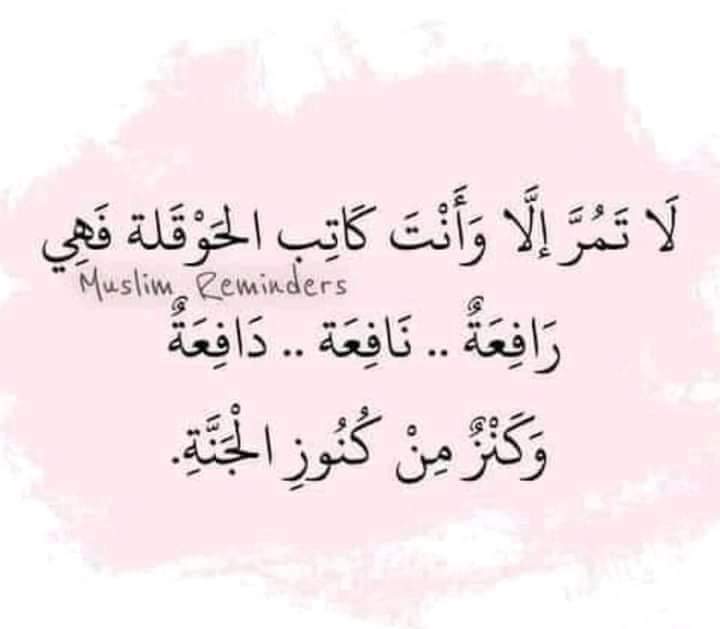 لَا تَمُرَّ إلَّا وَأَنْتَ كَاتِب الحَوْقَلة فَهِي
Muslim Reminders
رَافِعَةٌ .. نَافِعَة .. دَافِعَةٌ
وَكَنْزٌ مِنْ كُنُوزِ الْجَنَّةِ.